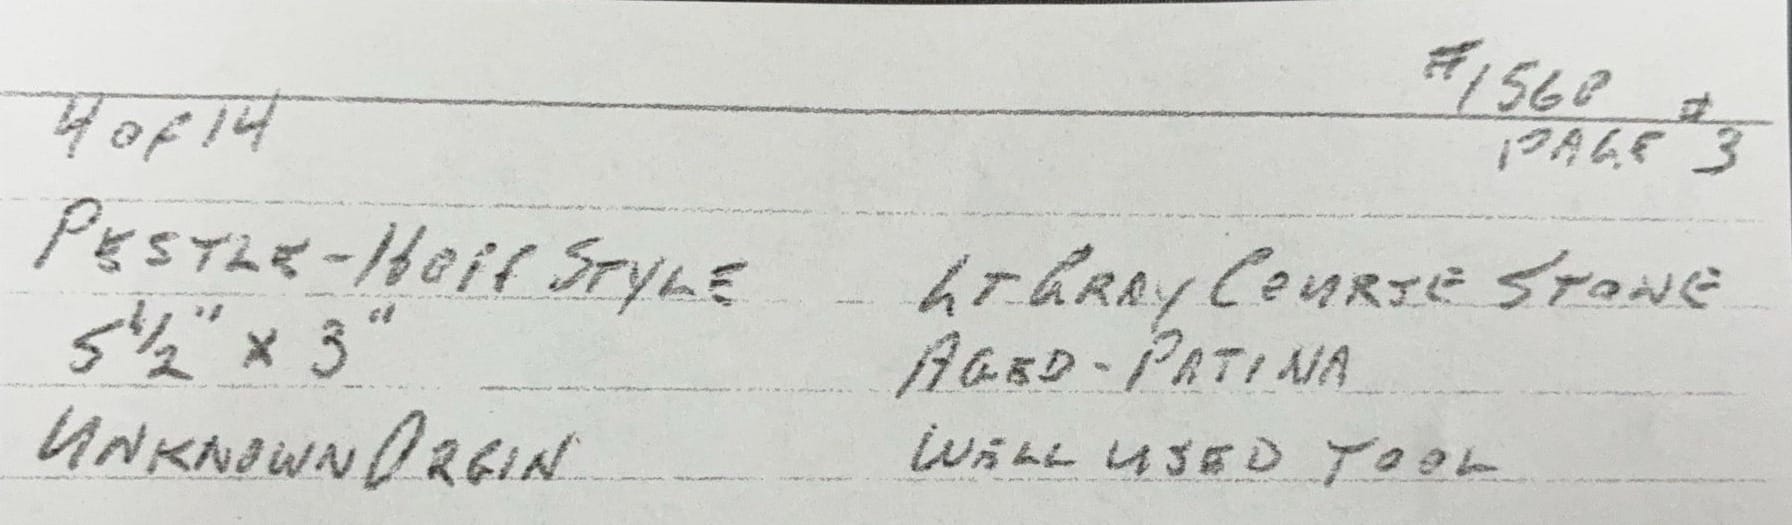 #1568
4 of 14
PAGE #3
PESTLE - Hoff STYLE
LT GRAY COURSE STONE
5 1/2" x 3"
AGED - PATINA
UNKNOWN ORGIN
WELL USED TOOL